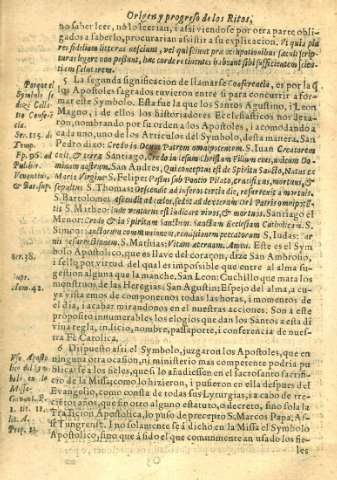 Origen y progreso de los Ritos,
no saber leer, no lo serian, i asi viendose por otra parte obli-
gados a saberlo, procurarian asistir a su explicacion. Vt quia plu
res fidelium litteras nesciunt, vel quia sunt præ occupationibus sæculi scrip-
turas legere non possunt, hæc corde retinentes habeant sibi sufficientem scien-
tiam salutarem.
Porque el
Symbolo se
dize Colla
tio Conferē-
cia.
5. La segunda significacion de llamarse Conferencia, es por la q̄
los Apostoles sagrados tuvieron entre si para concurrir a for-
mar este Symbolo. Esta fue la que los Santos Agustino, i Leon
Magno, i de ellos los historiadores Ecclesiasticos nos dexa-
ron, nombrando por su orden a los Apostoles, i acomodando a
Ser. 115. de
Temp.
cada uno, uno de los Articulos del Symbolo, desta manera, San
Pedro dixo: Credo in Deum Patrem omnipotentem. S. Iuan Creatorem
cœli, & terræ Santiago, Credo in Iesum Christum Filium eius, unicum Do-
minum nostrum, San Andres, Qui conceptus est de Spiritu Sancto, Natus ex
Maria Virgine S. Felipe: Passus sub Pontio Pilato, crucifixus, mortuus, &
sepultus S. Thomas: Descendit ad inferos tertia die, resurrexit a mortuis.
S. Bartolome: Ascendit ad cœlos, sedet ad dexteram Dei Patris omnipotētis
S. Matheo: Inde venturus est iudicare vivos, & mortuos. Santiago el
Menor: Credo & in Spiritum Sanctum. Sanctam Ecclesiam Catholicam S.
Simon: Sanctorum communionem remissionem peccatorum S. Iudas: Car-
nis resurrectionem. S. Mathias: Vitam æternam. Amen. Este es el Sym
bolo Apostolico, que es llave del coraçon, dize San Ambrosio,
Ser. 38.
i sello, por virtud del qual es imposible que entre al alma su-
gestion alguna que la manche. San Leon: Cuchillo que mata los
monstruos de las Heregias: San Agustin: Espejo del alma, a cu-
ya vista emos de componernos todas las horas, i momentos de
el dia, i acabar mirandonos en el nuestras acciones. Son a este
proposito innumerables los elogios que dan los Santos a esta di
vina regla, indicio, nombre, passaporte, i conferencia de nues-
tra Fè Catolica.
6. Dispuesto asi el Symbolo, juzgaron los Apostoles, que en
ninguna otra ocasion, ni ministerio mas competente podria pu-
blicarse a los fieles, que si lo añadiessen en el sacrosanto sacrifi-
cio de la Missa; como lo hizieron, i pusieron en ella despues del
Evangelio, como consta de todas sus Lyturgias, i a cabo de tre-
cietos años, que sin otro alguno estatuto, o decreto, sino sola la
Tradicion Apostolica, lo puso de precepto S. Marcos Papa. As-
Tungrense. I no solamente se à dicho en la Missa el Symbolo
Apostolico, sino que à sido el que comunmente an usado los fie-
les